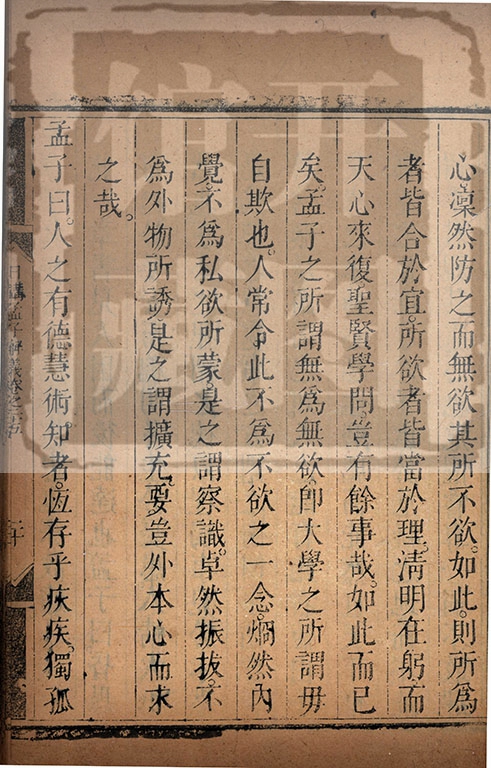 心。凜然防之而無欲其所不欲。如此。則所為
者皆合於宜。所欲者皆當於理。淸明在躬。而
天心來復。聖賢學問。豈有餘事哉。如此而已
矣。孟子之所謂無為無欲。卽大學之所謂毋
自欺也。人常令此不為不欲之一念。烱然內
覺。不為私欲所蒙。是之謂察識。卓然振拔。不
為外物所誘。是之謂擴充。要豈外本心而求
之哉。
孟子曰。人之有德慧術知者。恆存乎疢疾。獨孤
日講孟子解義卷之二十五